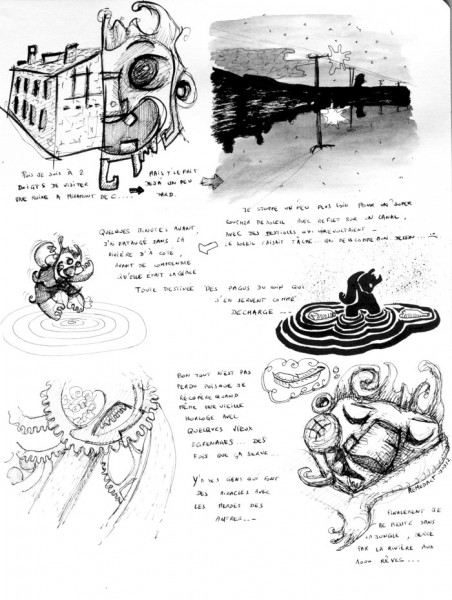 PUIS JE SUIS À 2
DOIGTS DE VISITER
UNE RUINE À MIRAMONT DE C....
MAIS Y'LE FAIT
DÉJÀ UN PEU
TARD.
JE STOPPE UN PEU PLUS LOIN POUR UN SUPER
COUCHER DE SOLEIL AVEC REFLET SUR UN CANAL,
AVEC DES BESTIOLES QUI VIREVOLTAIENT...
LE SOLEIL FAISAIT TÂCHE
QUELQUES MINUTES AVANT,
J'AI PATAUGÉ DANS LA
RIVIÈRE D'À CÔTÉ,
AVANT DE COMPRENDRE
QU'ELLE ÉTAIT LA GLACE
TOUTE DESTINÉE DES PAGUS DU COIN QUI
S'EN SERVENT COMME
DÉCHARGE...
BON TOUT N'EST PAS
PERDU PUISQUE JE
RÉCUPÈRE QUAND
MÊME UNE VIEILLE
HORLOGE AVEC
QUELQUES VIEUX
EGRENAGES... DES
FOIS QUE ÇA SERVE...
Y'A DES GENS QUI FONT
DES MIRACLES AVEC
LES MERDES DES
AUTRES...
FINALEMENT JE
ME PIEUTE DANS
LA JUNGLE, BERCÉ
PAR LA RIVIÈRE AUX
1000 RÊVES...